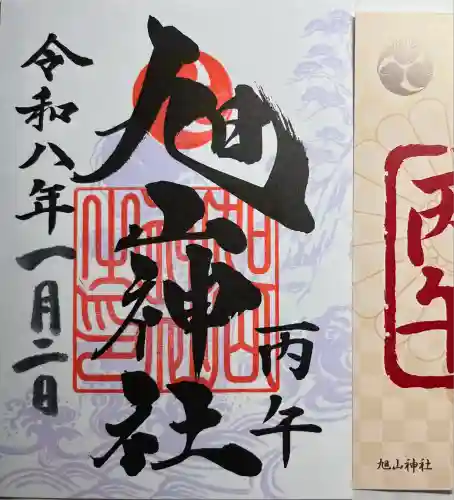 旭山神社
丙午
令和八年一月二日
丙午
旭山神社